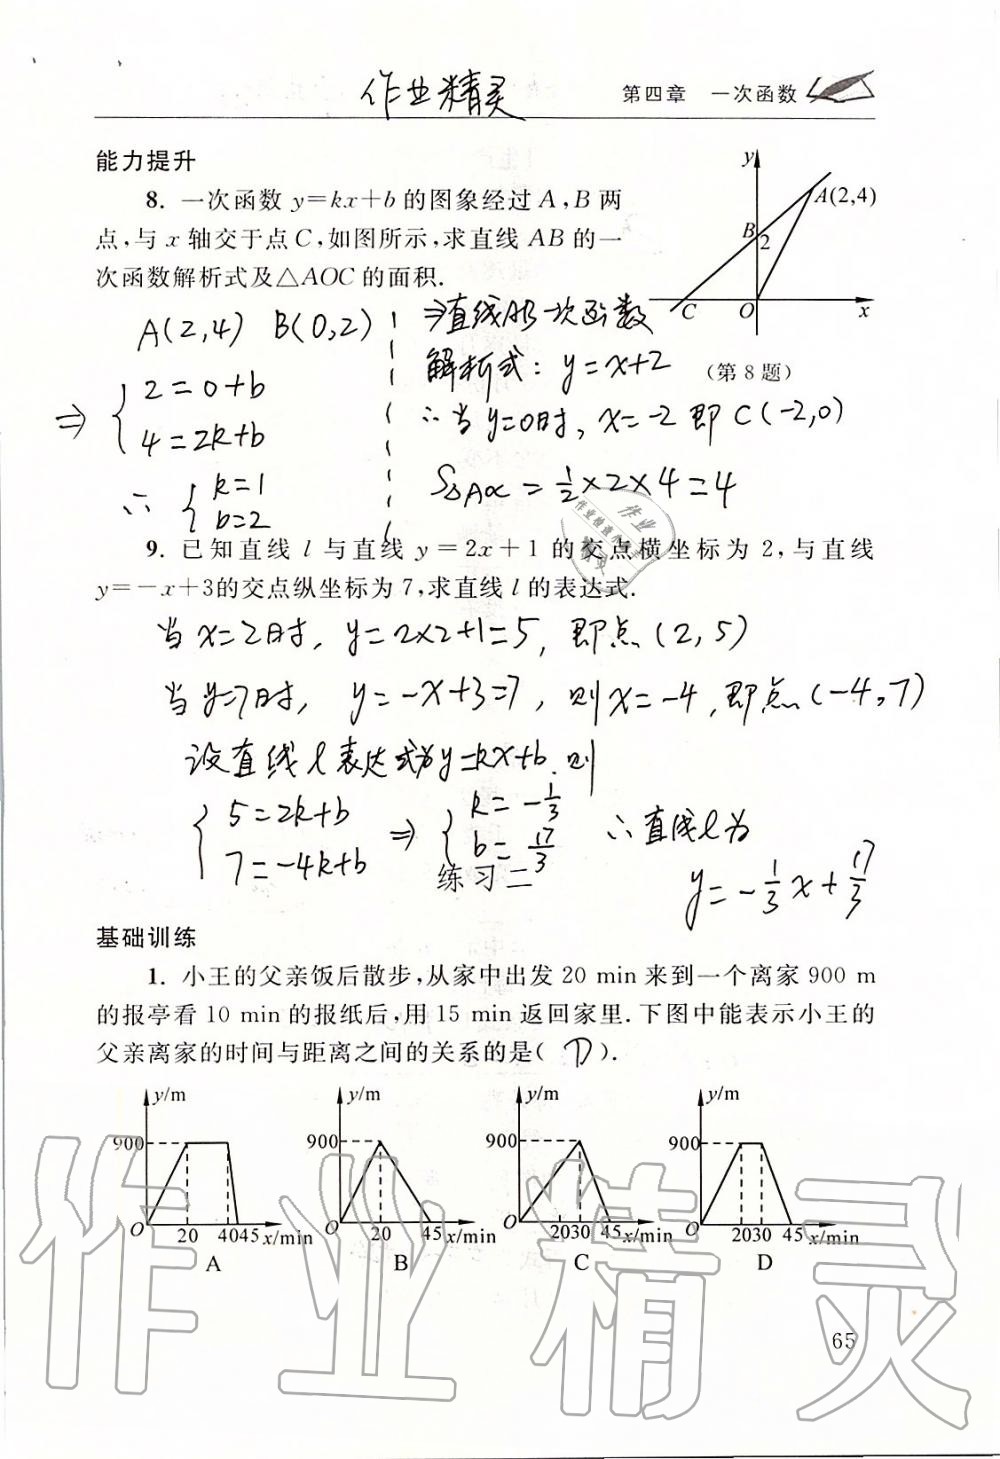 作业精灵
第四章 一次函数
能力提升
8. 一次函数 y=kx+b 的图象经过 A,B 两
点,与 x 轴交于点 C,如图所示,求直线 AB 的一
次函数解析式及△AOC 的面积.
y
A(2,4)
B
2
C O x
(第 8 题)
A(2,4) B(0,2)
⇒ { 2=0+b
4=2k+b
∴ { k=1
b=2
⇒直线AB一次函数
解析式: y=x+2
∴当y=0时, x=-2 即 C(-2,0)
S△AOC = 1/2×2×4=4
9. 已知直线 l 与直线 y=2x+1 的交点横坐标为 2,与直线
y=-x+3的交点纵坐标为 7,求直线 l 的表达式.
当 x=2时, y=2×2+1=5, 即点(2,5)
当 y=7时, y=-x+3=7, 则x=-4, 即点(-4,7)
设直线 l 表达式为y=kx+b.则
{ 5=2k+b
7=-4k+b
⇒ { k=-1/3
b=17/3
∴直线l为
y=-1/3x+17/3
练习二
基础训练
1. 小王的父亲饭后散步,从家中出发 20 min 来到一个离家 900 m
的报亭看 10 min 的报纸后,用 15 min 返回家里.下图中能表示小王的
父亲离家的时间与距离之间的关系的是( D ).
y/m y/m y/m y/m
900 900 900 900
O 20 4045 x/min O 20 45 x/min O 2030 45 x/min O 2030 45 x/min
A B C D
65
作业精灵